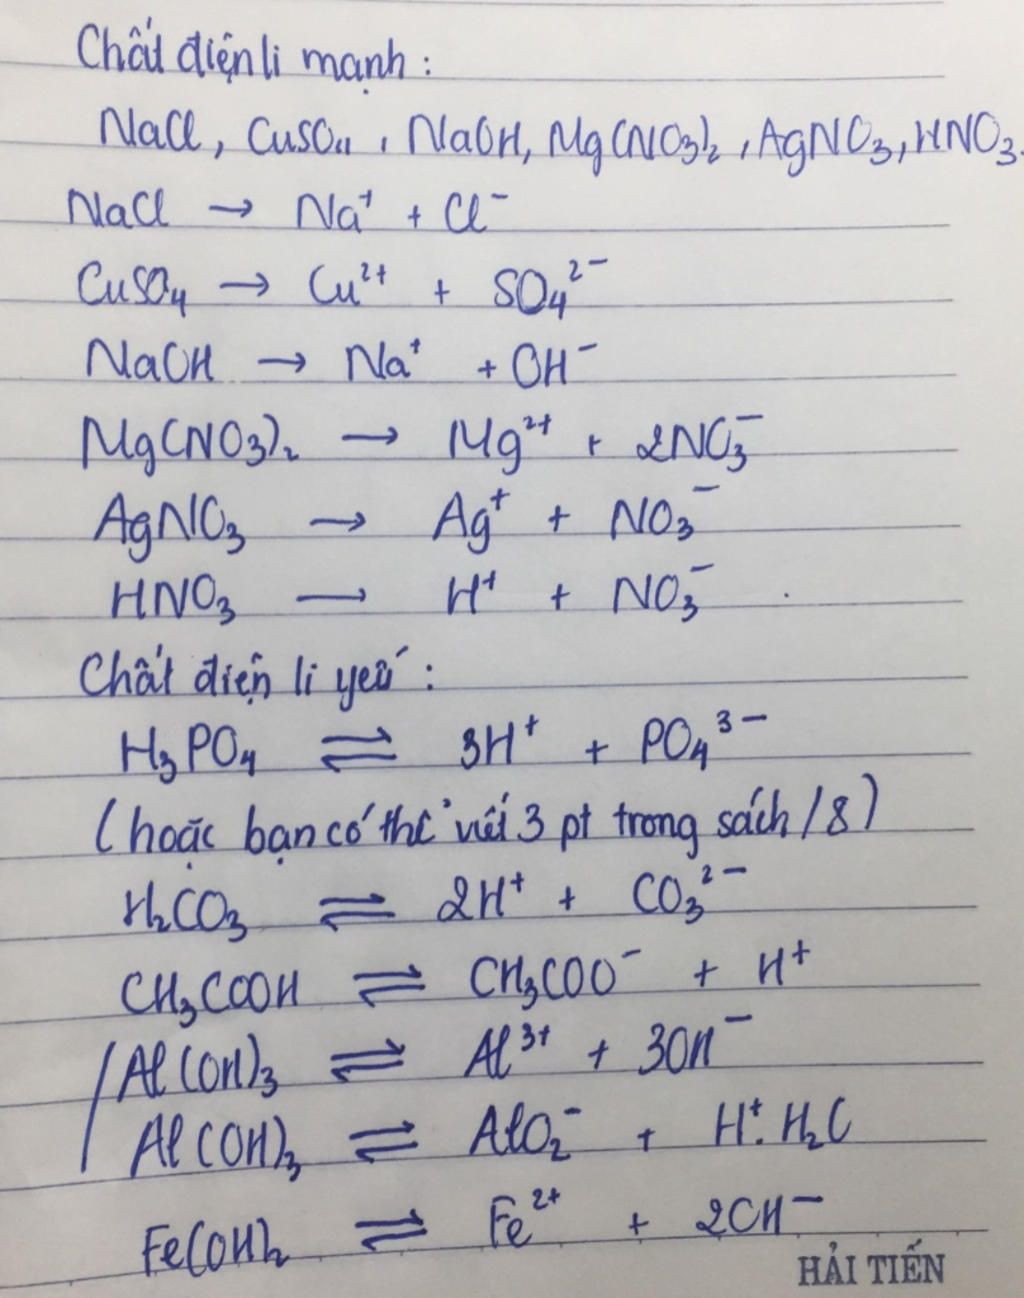 Chất điện li mạnh :
NaCl, CuSO₄, NaOH, Mg(NO₃)₂, AgNO₃, HNO₃.
NaCl → Na⁺ + Cl⁻
CuSO₄ → Cu²⁺ + SO₄²⁻
NaOH → Na⁺ + OH⁻
Mg(NO₃)₂ → Mg²⁺ + 2NO₃⁻
AgNO₃ → Ag⁺ + NO₃⁻
HNO₃ → H⁺ + NO₃⁻
Chất điện li yếu :
H₃PO₄ ⇌ 3H⁺ + PO₄³⁻
(hoặc bạn có thể viết 3 pt trong sách /8)
H₂CO₃ ⇌ 2H⁺ + CO₃²⁻
CH₃COOH ⇌ CH₃COO⁻ + H⁺
Al(OH)₃ ⇌ Al³⁺ + 3OH⁻
Al(OH)₃ ⇌ AlO₂⁻ + H⁺.H₂O
Fe(OH)₂ ⇌ Fe²⁺ + 2OH⁻
HẢI TIẾN